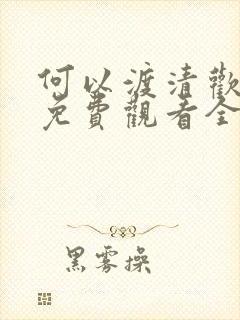 何以渡清歡
免費觀看全
黑雾操